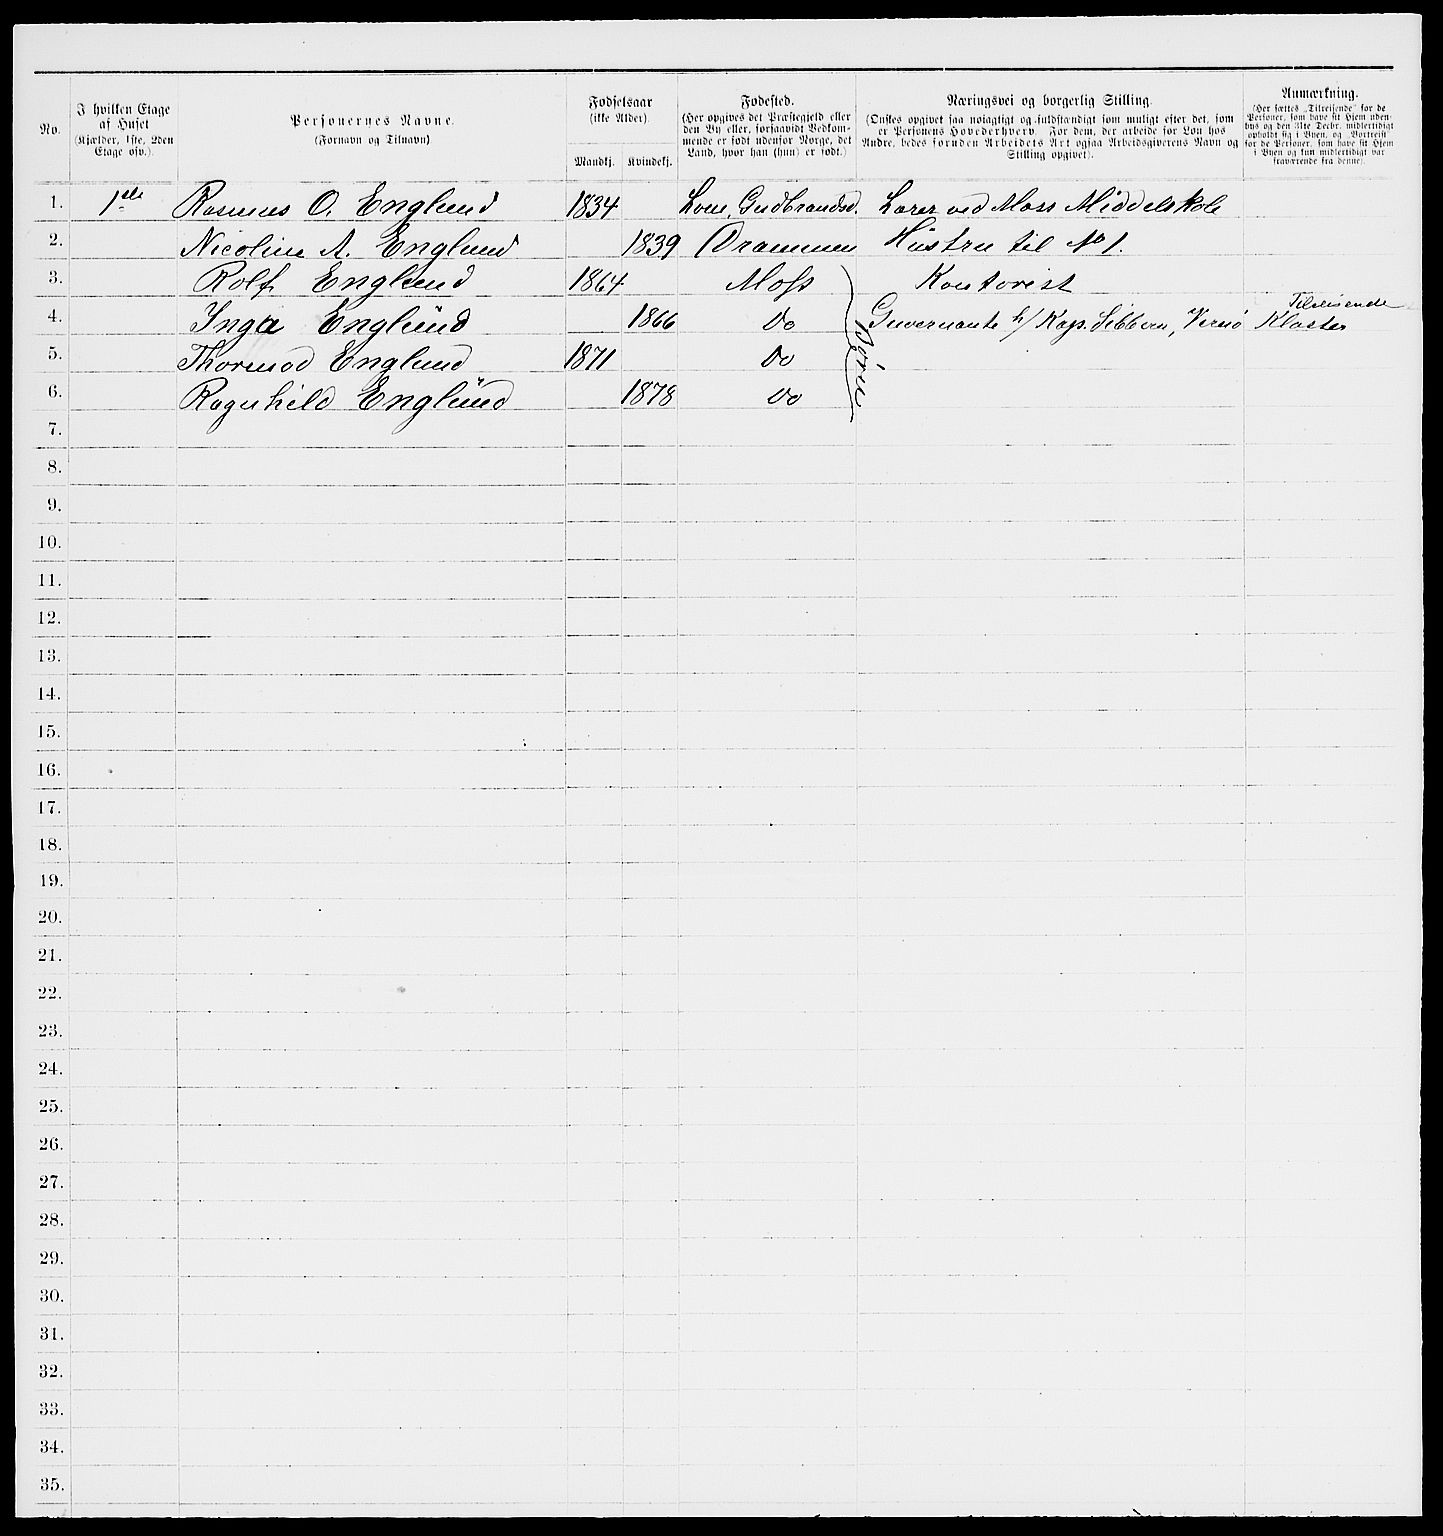 No.
I hvilken Etage
af Huset
(Kjælder, 1ste, 2den
Etage osv.).
Personernes Navne.
(Fornavn og Tilnavn)
Fødselsaar
(ikke Alder).
Mandkj. Kvindekj.
Fødested.
(Her opgives det Præstegjeld eller
den By eller, forsaavidt Vedkom-
mende er født udenfor Norge, det
Land, hvor han (hun) er født.)
Næringsvei og borgerlig Stilling.
(Ønskes opgivet saa nøiagtigt og fuldstændigt som muligt efter det, som
er Personens Hovederhverv. For dem, der arbeide for Løn hos
Andre, bedes foruden Arbeidets Art ogsaa Arbeidsgiverens Navn og
Stilling opgivet).
Anmærkning.
(Her sættes „Tilreisende" for de
Personer, som have sit Hjem uden-
bys og den 31te Decbr. midlertidigt
opholdt sig i Byen, og „Bortreist"
for de Personer, som have sit Hjem
i Byen og kun midlertidigt var
fraværende fra denne).
1. 1ste Rasmus O. Englund 1834 Lom, Gudbrandsd. Lærer ved Moss Middelskole
2. Nicoline A. Englund 1839 Drammen Hustru til No 1.
3. Rolf Englund 1864 Moss Kontorist
4. Inga Englund 1866 Do Guvernante h/ Kaps. Sibbern, Værnø Tilreisende
Kloster
5. Thormod Englund 1871 Do
6. Ragnhild Englund 1878 Do
Børn
7.
8.
9.
10.
11.
12.
13.
14.
15.
16.
17.
18.
19.
20.
21.
22.
23.
24.
25.
26.
27.
28.
29.
30.
31.
32.
33.
34.
35.